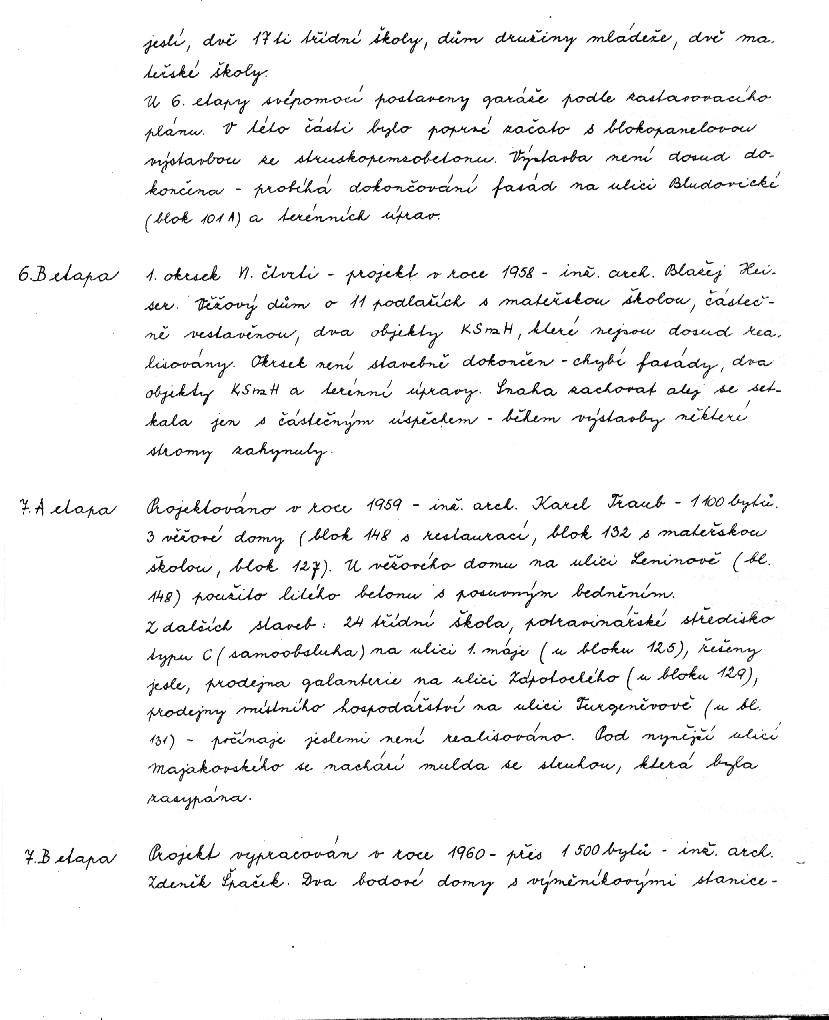 jeslí, dvě 17ti třídní školy, dům družiny mládeže, dvě ma-
teřské školy.
U 6. etapy svépomocí postaveny garáže podle zastavovacího
plánu. V této části bylo poprvé začato s blokopanelovou
výstavbou ze struskopemzobetonu. Výstavba není dosud do-
končena - probíhá dokončování fasád na ulici Bludovické
(blok 101A) a terénních úprav.
6.B etapa 1. okrsek VI. čtvrti - projekt v roce 1958 - inž. arch. Blažej Hei-
ser. Věžový dům o 11 podlažích s mateřskou školou, částeč-
ně vestavěnou, dva objekty KSmH, které nejsou dosud rea-
lisovány. Okrsek není stavebně dokončen - chybí fasády, dva
objekty KSmH a terénní úpravy. Snaha zachovat alej se set-
kala jen s částečným úspěchem - během výstavby některé
stromy zahynuly.
7.A etapa Projektováno v roce 1959 - inž. arch. Karel Traub - 1100 bytů.
3 věžové domy (blok 148 s restaurací, blok 132 s mateřskou
školou, blok 127). U věžového domu na ulici Leninově (bl.
148) použito litého betonu s posuvným bedněním.
Z dalších staveb: 24 třídní škola, potravinářské středisko
typu C (samoobsluha) na ulici 1. máje (u bloku 125), řešeny
jesle, prodejna galanterie na ulici Zápotockého (u bloku 129),
prodejny místního hospodářství na ulici Turgeněvově (u bl.
131) - počínaje jeslemi není realisováno. Pod nynější ulicí
Majakovského se nachází mulda se struhou, která byla
zasypána.
7.B etapa Projekt vypracován v roce 1960 - přes 1500 bytů - inž. arch.
Zdeněk Špaček. Dva bodové domy s výměníkovými stanice-